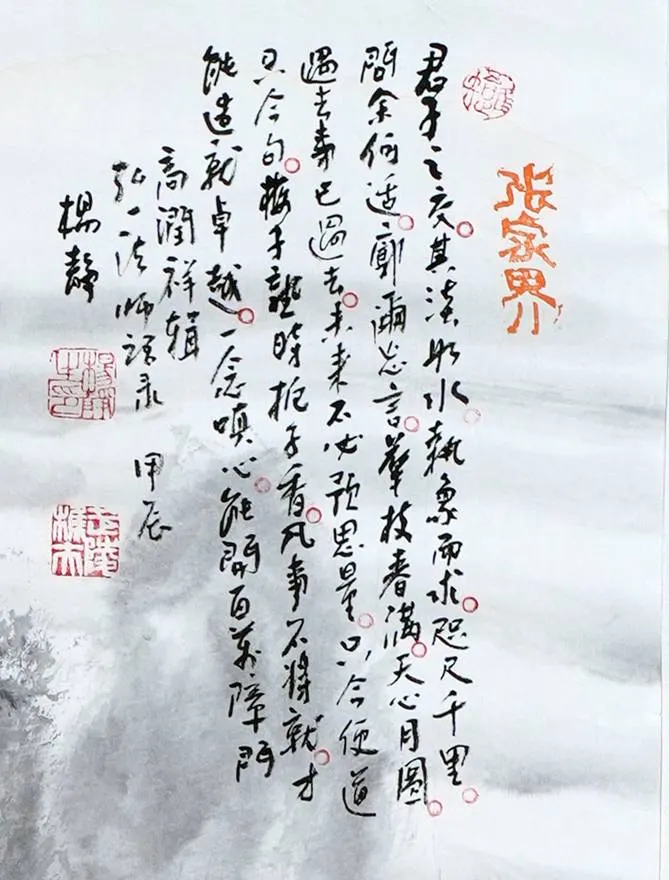 张家界
君子之交。其淡如水。執象而求。咫尺千里。
問余何适。廓爾忘言。華枝春满。天心月圓。
過去事已過去。未来不必预思量。只今便道
只今句。梅子熟時栀子香。凡事不将就。才
能造就卓越。一念嗔心。能開百萬障門
高潤祥辑
弘一法師語录 甲辰
楊静